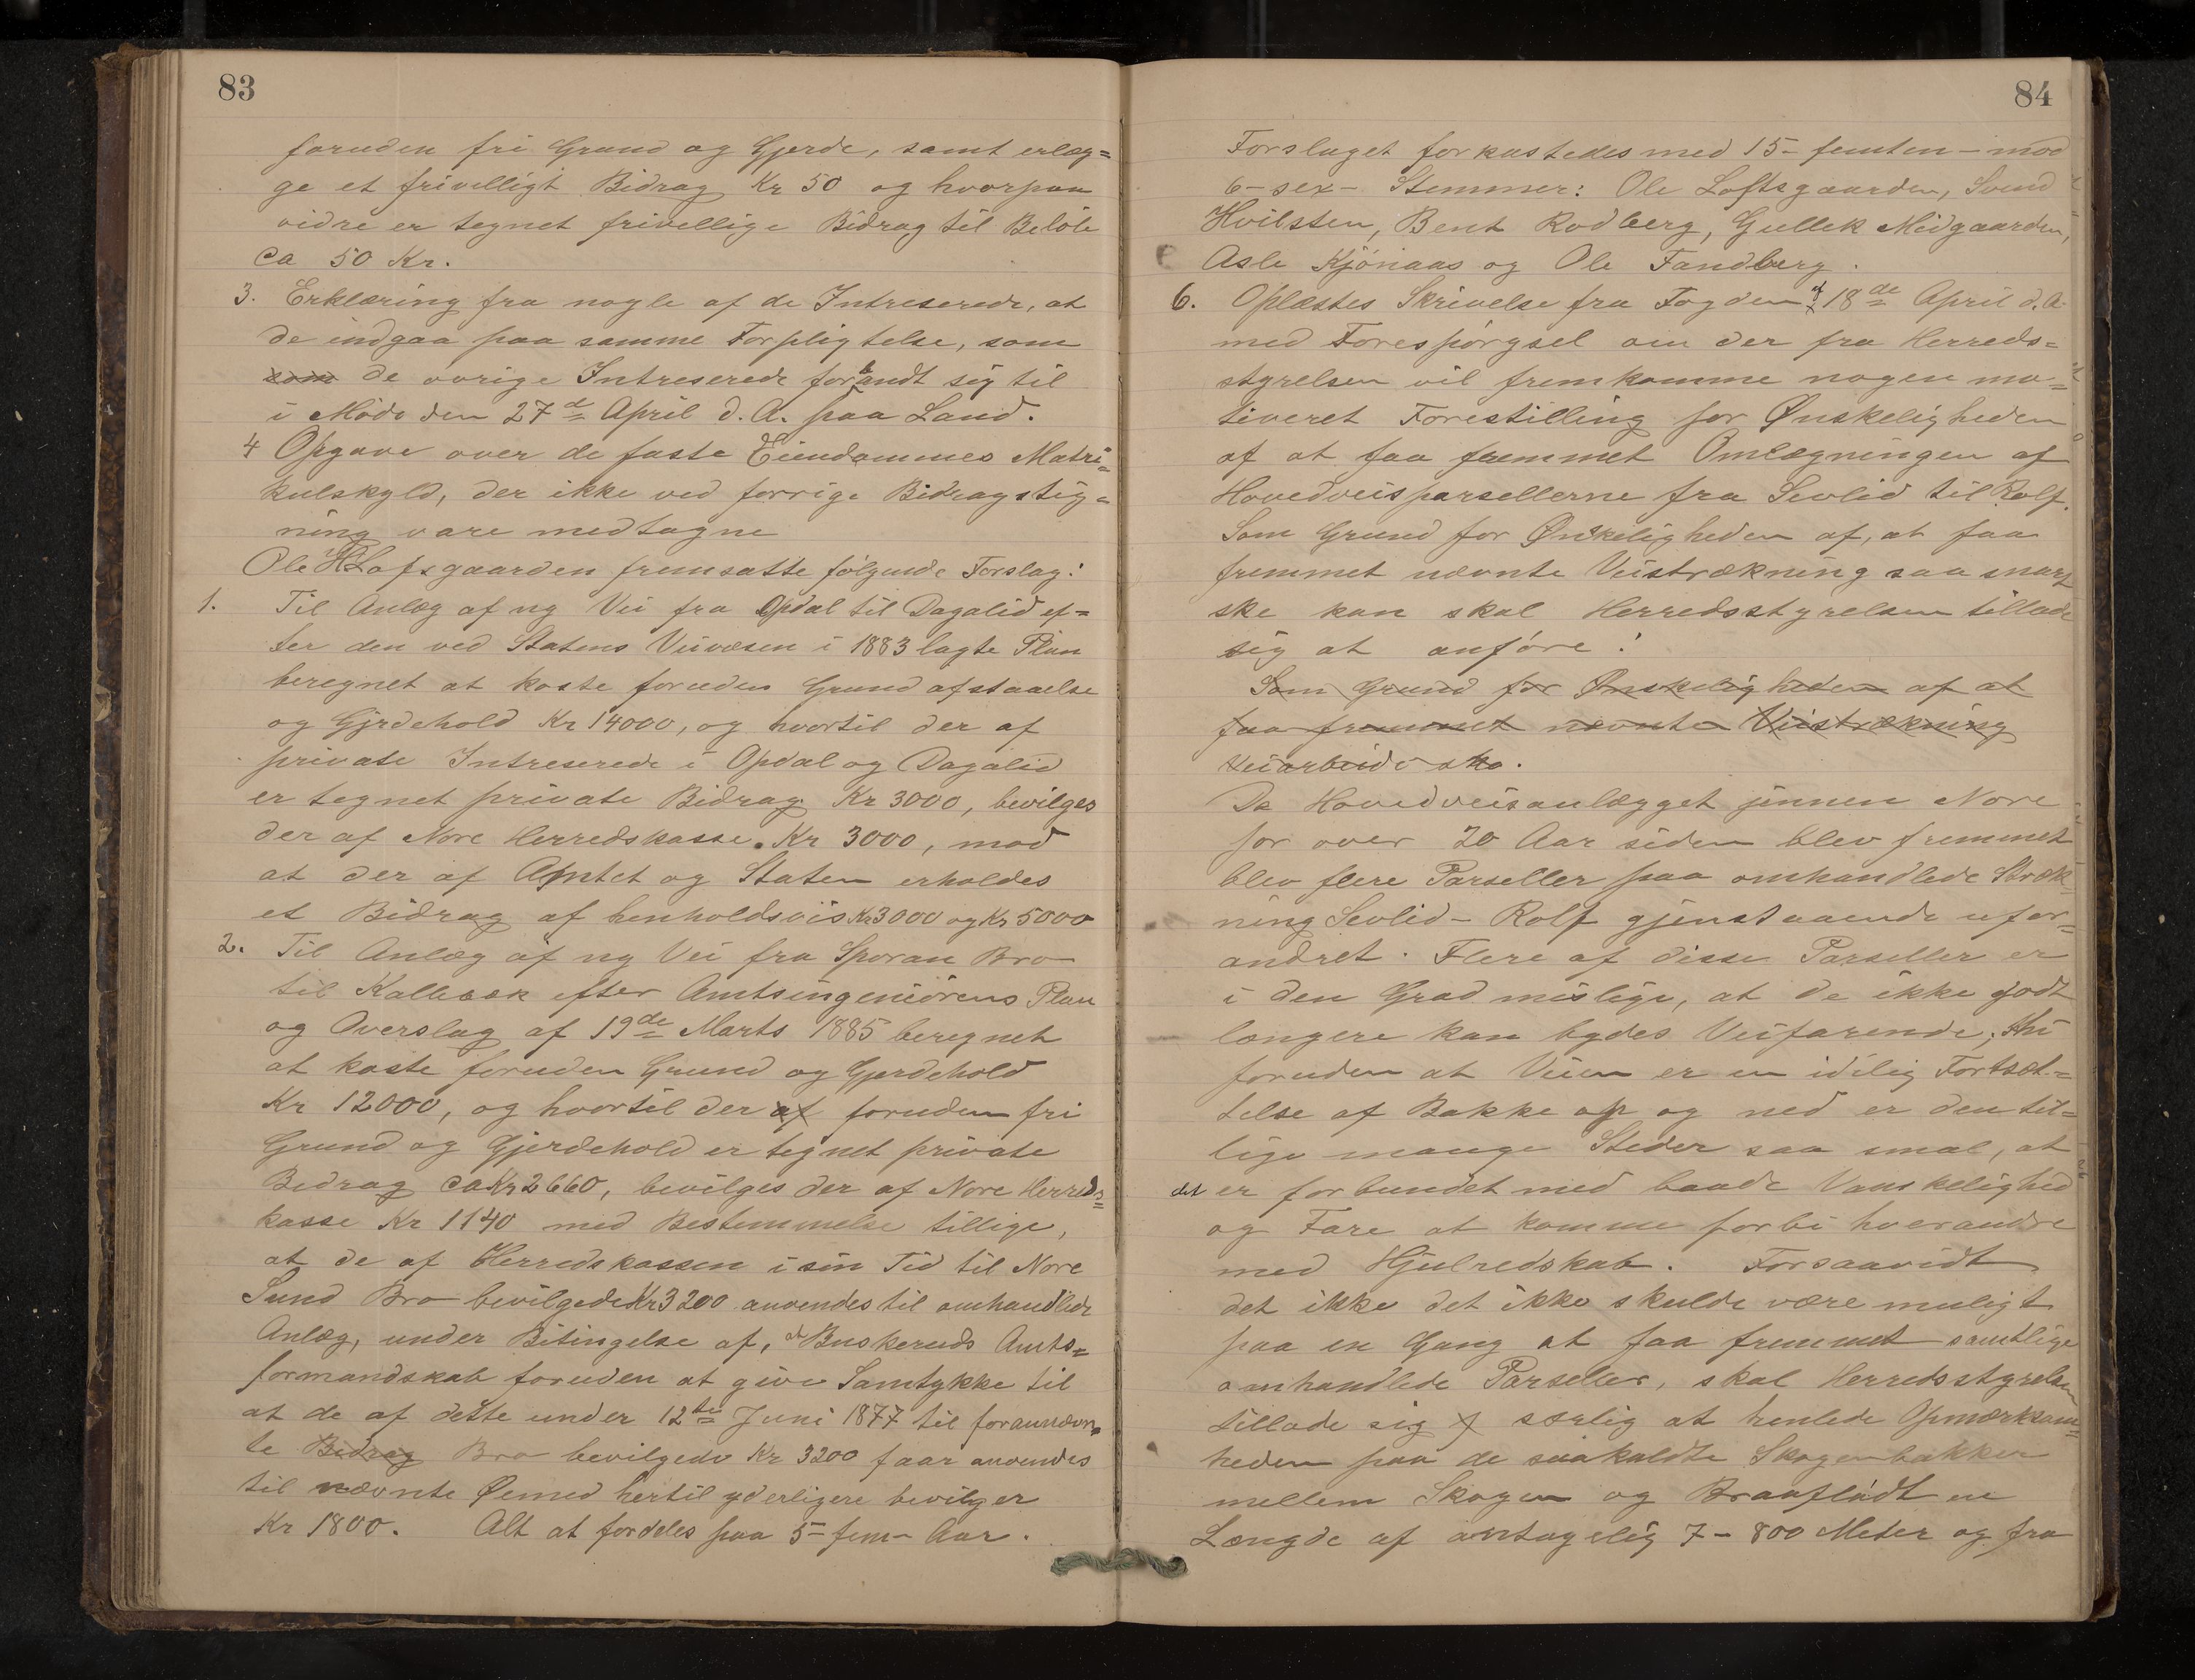 83
foruden fri Grund og Gjerde, samt erlæg=
ge et frivilligt Bidrag Kr 50 og hvorpaa
vidre er tegnet frivellige Bidrag til Beløb
Ca 50 Kr.
3. Erklæring fra nogle af de Intreserede, at
de indgaa paa samme Forpligtelse, som
som de øvrige Intreserede forbandt sig til
i Møde den 27d April d. A. paa Land.
4 Opgave over de faste Eiendommes Matri=
kulskyld, der ikke ved forrige Bidragstig=
ning vare medtagne
Ole H Lofsgaarden fremsatte følgende Forslag:
1. Til Anlæg af ny Vei fra Opdal til Dagalid ef=
ter den ved Statens Veivæsen i 1883 lagte Plan
beregnet at koste foruden Grund afstaaelse
og Gjrdehold Kr 14000, og hvortil der af
private Intreserede i Opdal og Dagalid
er tegnet private Bidrag Kr 3000, bevilges
der af Nore Herredskasse. Kr 3000, mod
at der af Amtet og Staten erholdes
et Bidrag af henholdsvis Kr 3000 og Kr 5000
2. Til Anlæg af ny Vei fra Sporan Bro
til Kallebæk efter Amtsingeniørens Plan
og Overslag af 19de Marts 1885 beregnet
at koste foruden Grund og Gjerdehold
Kr 12000, og hvortil der af foruden fri
Grund og Gjerdehold er tegnet private
Bedrag Ca Kr 2660, bevilges der af Nore Herreds=
kasse Kr 1140 med Bestemmelse tillige,
at de af Herredskassen i sin Tid til Nore
Sund Bro bevilgede Kr 3200 anvendes til omhandlede
Anlæg, under Bitingelse af, at Buskeruds Amts=
formandskab foruden at give Samtykke til
at de af dette under 12te Juni 1877 til forannævn=
te Bidrag Bro bevilgede Kr 3200 faar anvendes
til nævnte Øiemed hertil yderligere bevilger
Kr 1800. Alt at fordeles paa 5- fem- Aar.
84
Forslaget forkastedes med 15- femten- mod
6- sex- Stemmer: Ole Loftsgaarden, Svend
Hvilsten, Bent Rodberg, Gullek Midgaarden,
Asle Kjønaas og Ole Tandberg.
6. Oplæstes Skrivelse fra Fogden af 18de April d. A.
med Forespørgsel om der fra Herreds=
styrelsen vil fremkomme nogen mo=
tiveret Forestilling for Ønskeligheden
af at faa fremmet Omlægningen af
Hovedveisparsellerne fra Sevlid til Rolf.
Som Grund for Ønskeligheden af, at faa
fremmet nævnte Veistrækning saa snart
ske kan skal Herredsstyrelsen tillade
sig at anføre:
Som Grund for Ønskeligheden af at
faa fremmet nævnte Veistrækning
Veiarbeide sto.
Da Hovedveisanlægget jennem Nore
for over 20 Aar siden blev fremmet
blev flere Parseller paa omhandlede Stræk=
ning Sevlid- Rolf gjenstaaende ufor=
andret. Flere af disse Parseller er
i den Grad mislige, at de ikke godt
længere kan bydes Veifarende; thi
foruden at Veien er en idelig Fortsæt=
telse af Bakke op og ned er den til=
lige mange Steder saa smal, at
det er forbundet med baade Vanskelighed
og Fare at komme forbi hverandre
med Hjulredskab. Forsaavidt
det ikke det ikke skulde være muligt
paa en Gang at faa fremmet samtlige
omhandlede Parseller, skal Herredsstyrelsen
tillade sig særlig at henlede Opmærksom=
heden paa de saakaldte Skogenbakken
mellem Skogen og Braaflådt en
Længde af antagelig 7- 800 Meter og fra